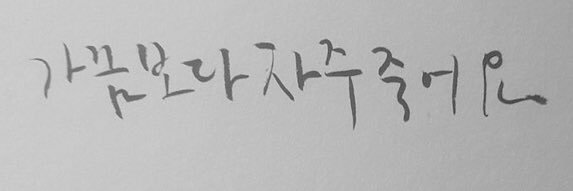 가끔보다 자주 죽어요